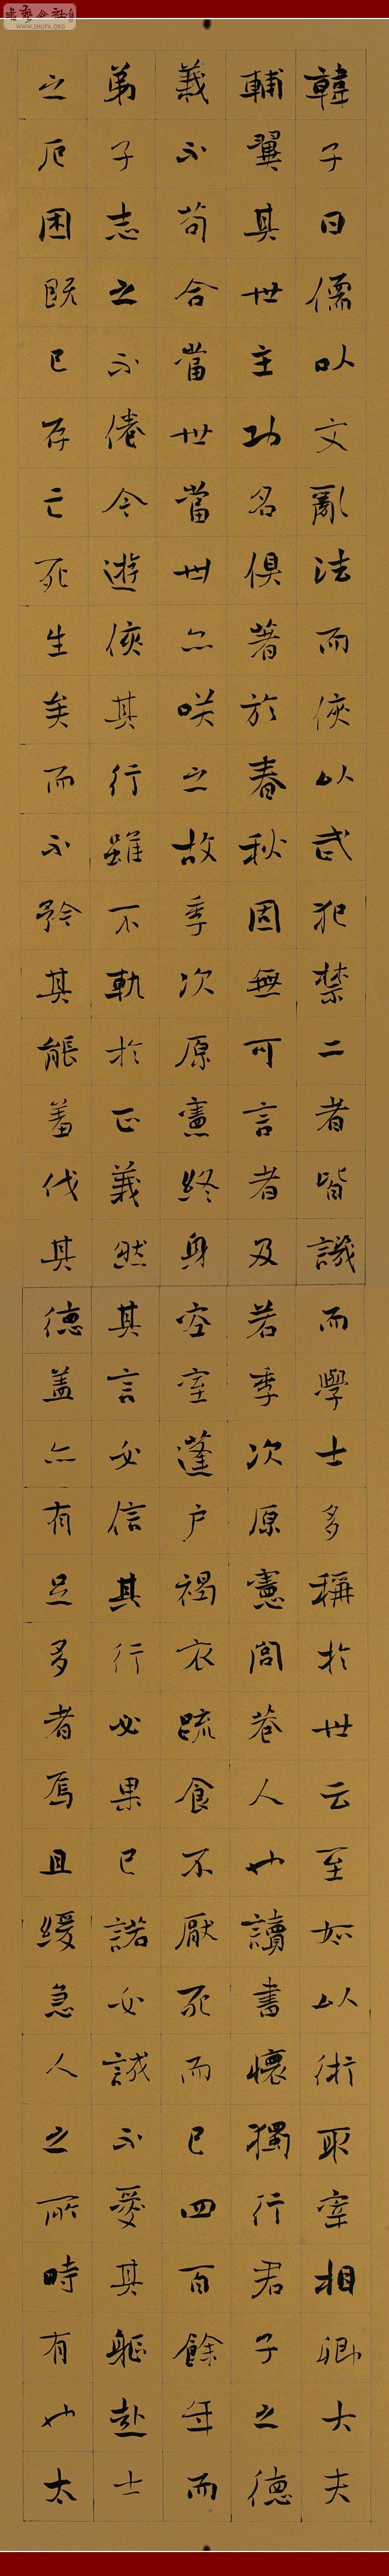 韓子曰儒以文亂法而俠以武犯禁二者皆譏而學士多稱於世云至如以術取宰相卿大夫
輔翼其世主功名俱著於春秋固無可言者及若季次原憲閭巷人也讀書懷獨行君子之德
義不苟合當世當世亦咲之故季次原憲終身空室蓬戶褐衣疏食不厭死而已四百餘年而
弟子志之不倦今遊俠其行雖不軌於正義然其言必信其行必果已諾必誠不愛其軀赴士
之厄困既已存亡死生矣而不矜其能羞伐其德蓋亦有足多者焉且緩急人之所時有也太
WWW.SHUFA.ORG